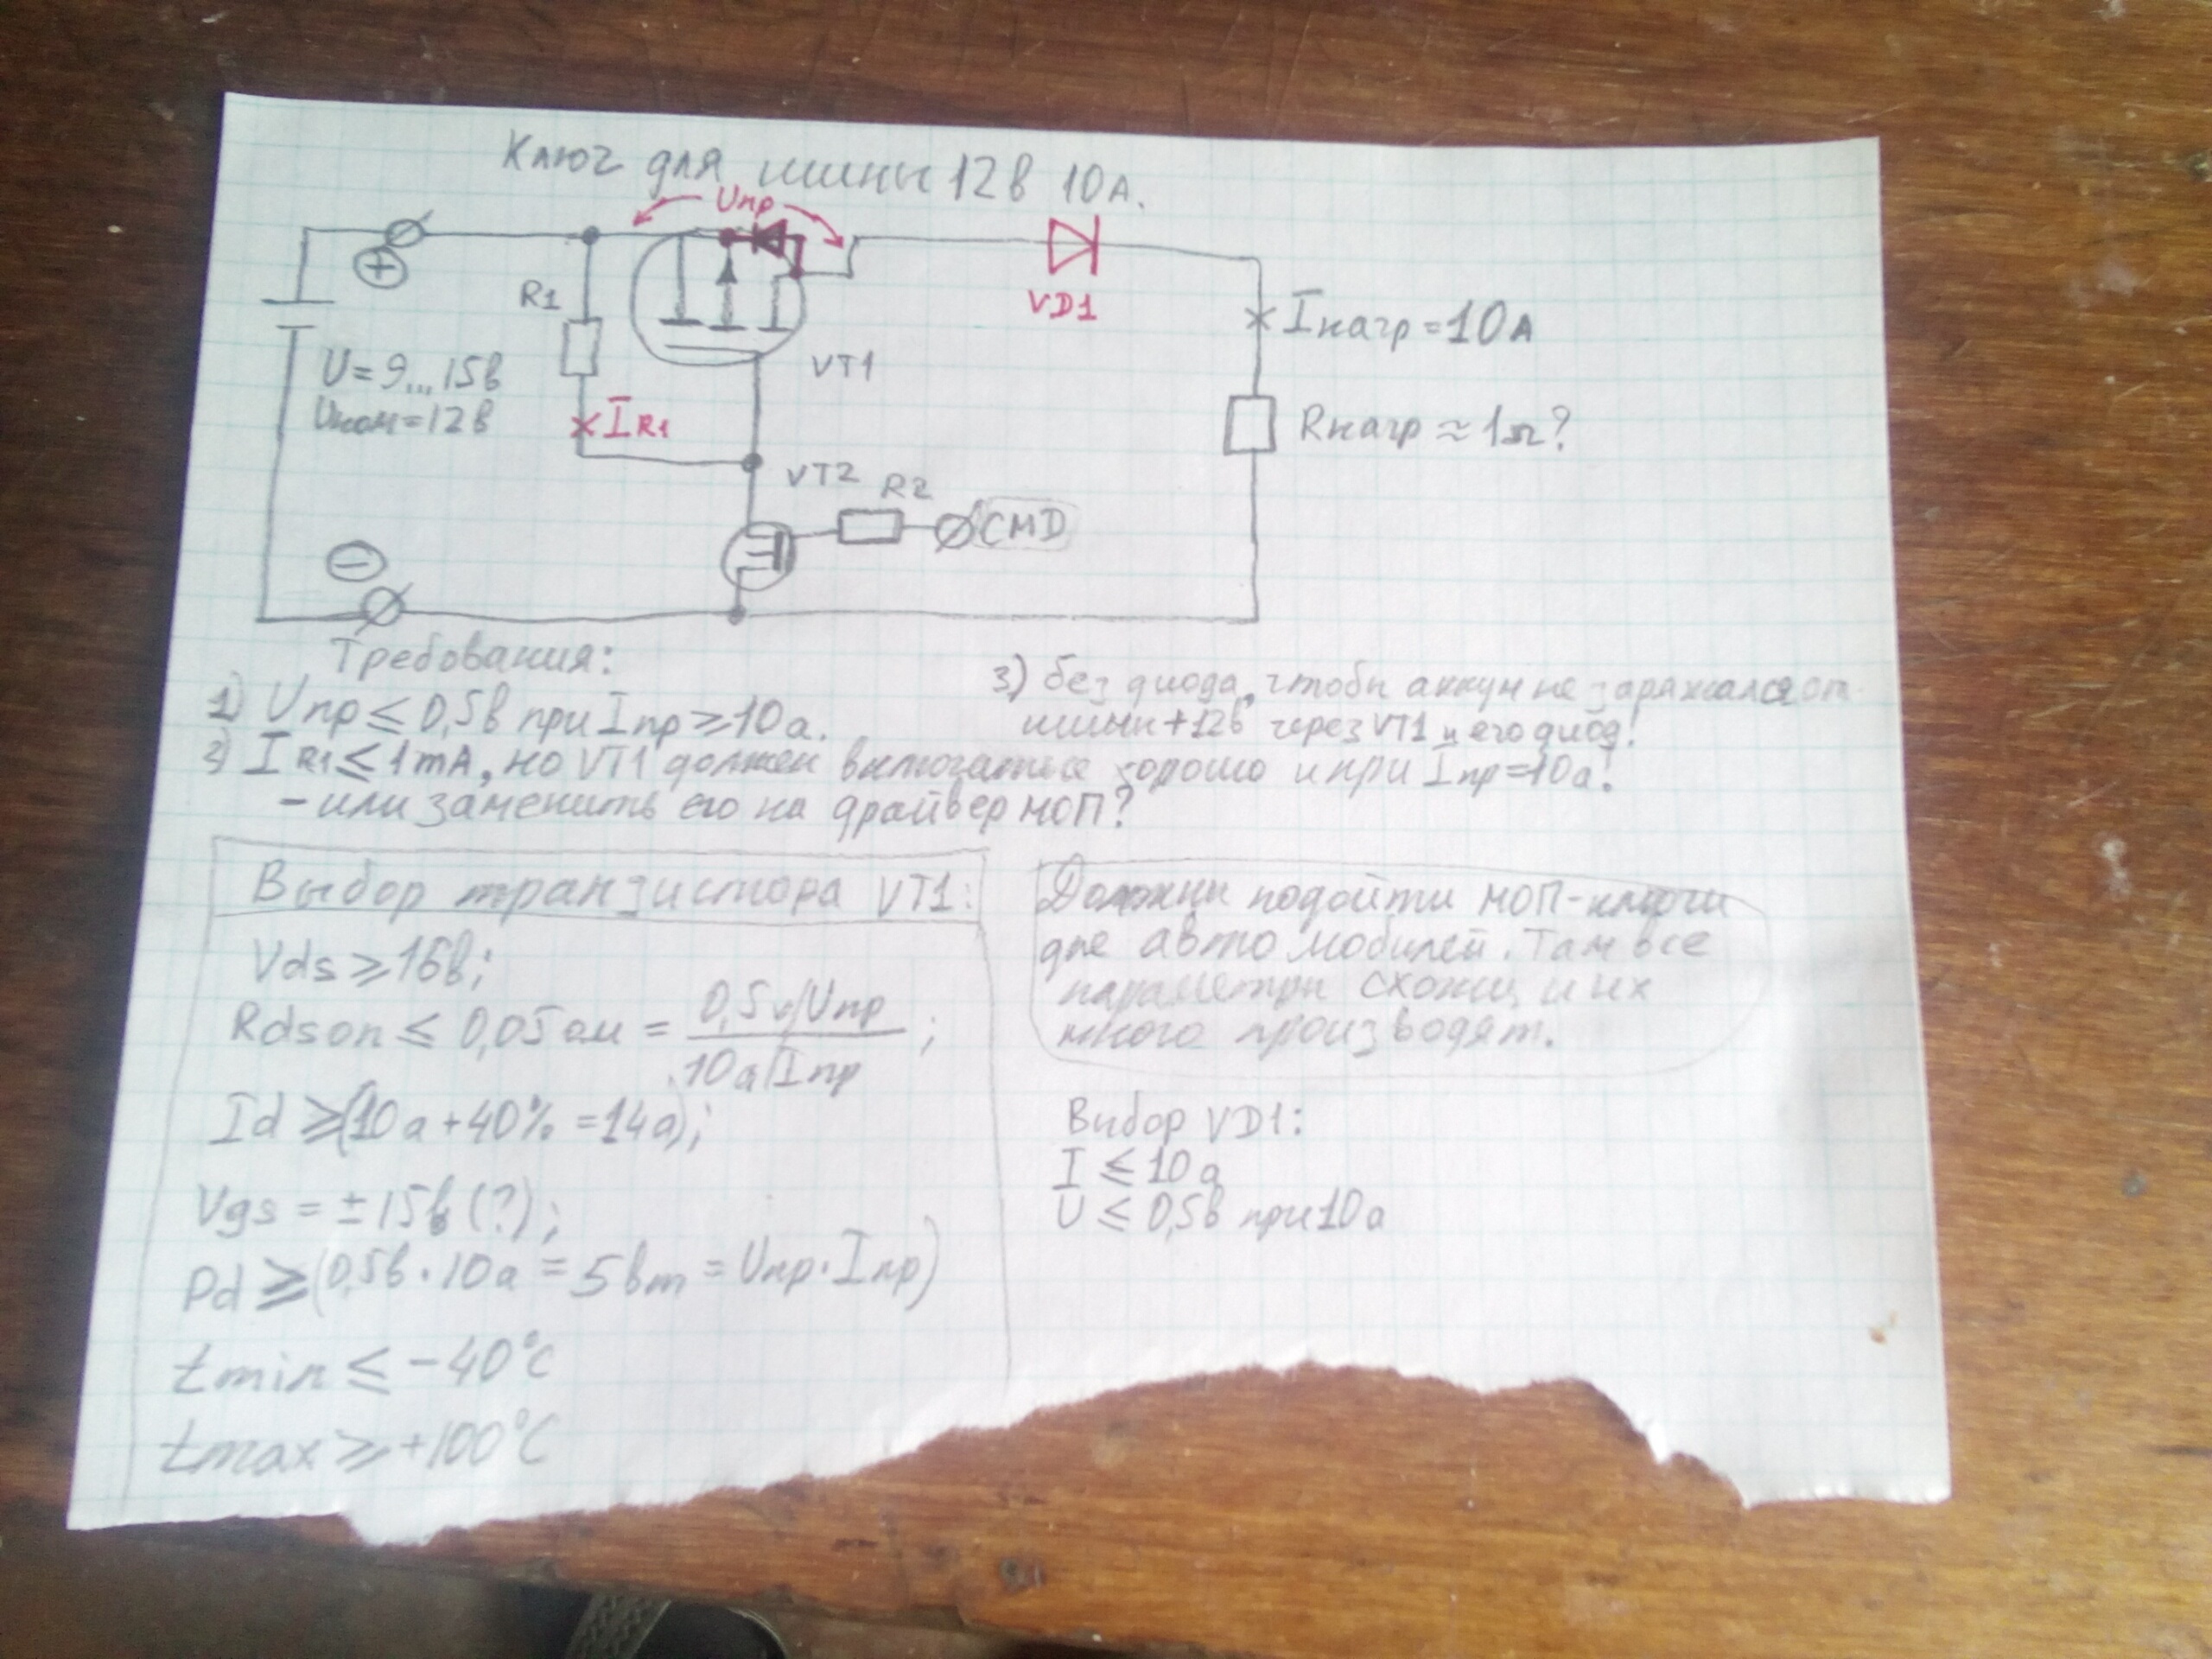 Ключ для шины 12в 10А.
Uпр
R1
VT1
VD1
Iнагр = 10А
U= 9...15в
Uном=12в
IR1
Rнагр ≈ 1Ω?
VT2
R2
CMD
+
−
Требования:
1) Uпр ≤ 0,5в при Iпр ≥ 10а.
2) IR1 ≤ 1mA, но VT1 должен включаться хорошо и при Iпр=10а!
- или заменить его на драйвер МОП?
3) без диода, чтобы аккум не заряжался от
шины +12в через VT1 и его диод!
Выбор транзистора VT1:
Vds ≥ 16в;
Rdson ≤ 0,05ом = 0,5в/Uпр
10а/Iпр ;
Id ≥ (10а + 40% = 14а);
Vgs = ± 15в (?);
Pd ≥ (0,5в · 10а = 5вт = Uпр · Iпр)
tmin ≤ -40°C
tmax ≥ +100°C
Должны подойти МОП-ключи
для автомобилей. Там все
параметры схожи, и их
много производят.
Выбор VD1:
I ≤ 10а
U ≤ 0,5в при 10а